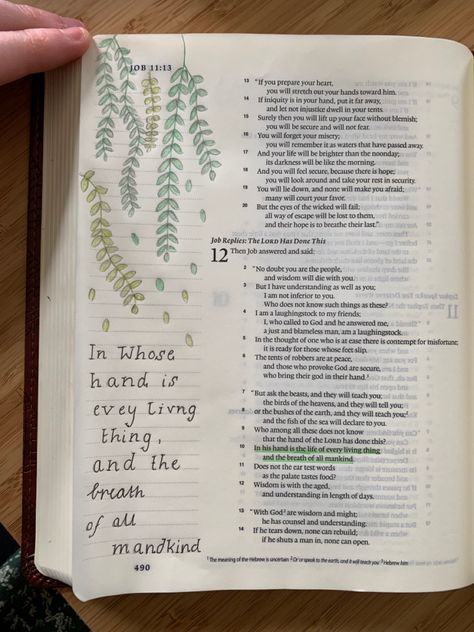 JOB 11:13
In Whose
hand is
evey livng
thing,
and the
breath
of all
mandkind
490
13 “If you prepare your heart,
you will stretch out your hands toward him.
14 If iniquity is in your hand, put it far away,
and let not injustice dwell in your tents.
15 Surely then you will lift up your face without blemish;
you will be secure and will not fear.
16 You will forget your misery;
you will remember it as waters that have passed away.
17 And your life will be brighter than the noonday;
its darkness will be like the morning.
18 And you will feel secure, because there is hope;
you will look around and take your rest in security.
19 You will lie down, and none will make you afraid;
many will court your favor.
20 But the eyes of the wicked will fail;
all way of escape will be lost to them,
and their hope is to breathe their last.”
Job Replies: The LORD Has Done This
12 Then Job answered and said:
2 “No doubt you are the people,
and wisdom will die with you.
3 But I have understanding as well as you;
I am not inferior to you.
Who does not know such things as these?
4 I am a laughingstock to my friends;
I, who called to God and he answered me,
a just and blameless man, am a laughingstock.
5 In the thought of one who is at ease there is contempt for misfortune;
it is ready for those whose feet slip.
6 The tents of robbers are at peace,
and those who provoke God are secure,
who bring their god in their hand.¹
7 “But ask the beasts, and they will teach you;
the birds of the heavens, and they will tell you;
8 or the bushes of the earth, and they will teach you;²
and the fish of the sea will declare to you.
9 Who among all these does not know
that the hand of the LORD has done this?
10 In his hand is the life of every living thing
and the breath of all mankind.
11 Does not the ear test words
as the palate tastes food?
12 Wisdom is with the aged,
and understanding in length of days.
13 “With God³ are wisdom and might;
he has counsel and understanding.
14 If he tears down, none can rebuild;
if he shuts a man in, none can open.
¹ The meaning of the Hebrew is uncertain ² Or or speak to the earth, and it will teach you ³ Hebrew him